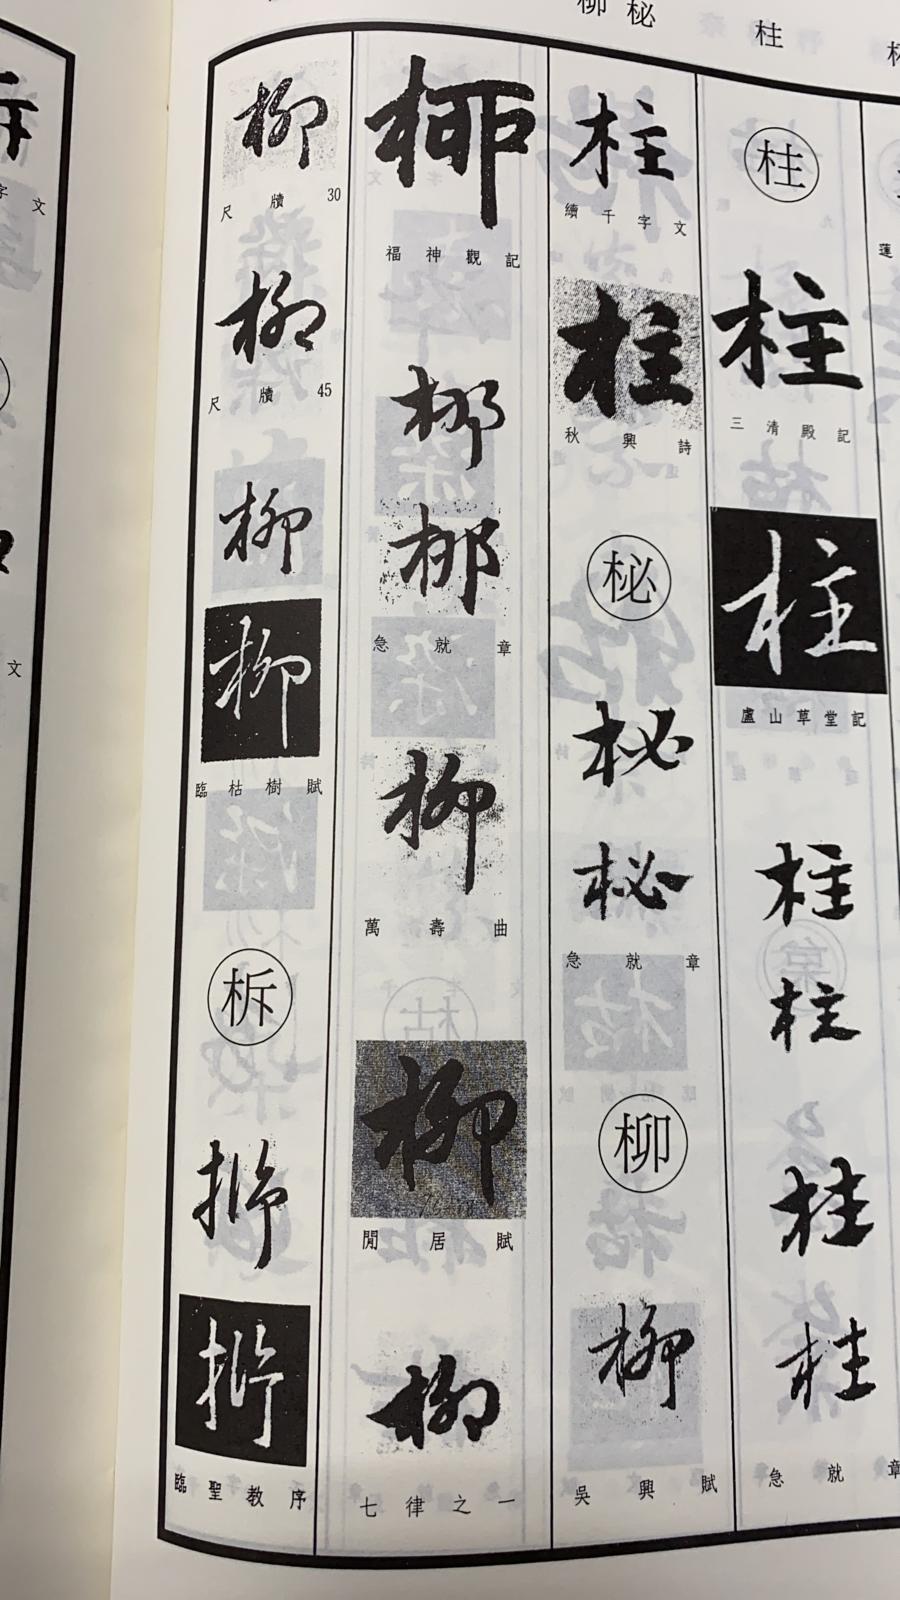 柳 秘
柱
柱
柱
三清殿記
柱
盧山草堂記
柱
柱
柱
柱
急就章
柱
續千字文
柱
秋興詩
秘
秘
秘
急就章
柳
柳
吳興賦
柳
福神觀記
柳
柳
急就章
柳
萬壽曲
柳
閒居賦
柳
七律之一
柳
尺牘30
柳
尺牘45
柳
柳
臨枯樹賦
柝
臨聖教序
文
文